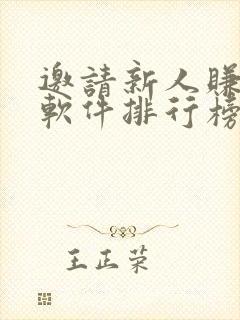 邀請新人賺
軟件排行榜
王正榮